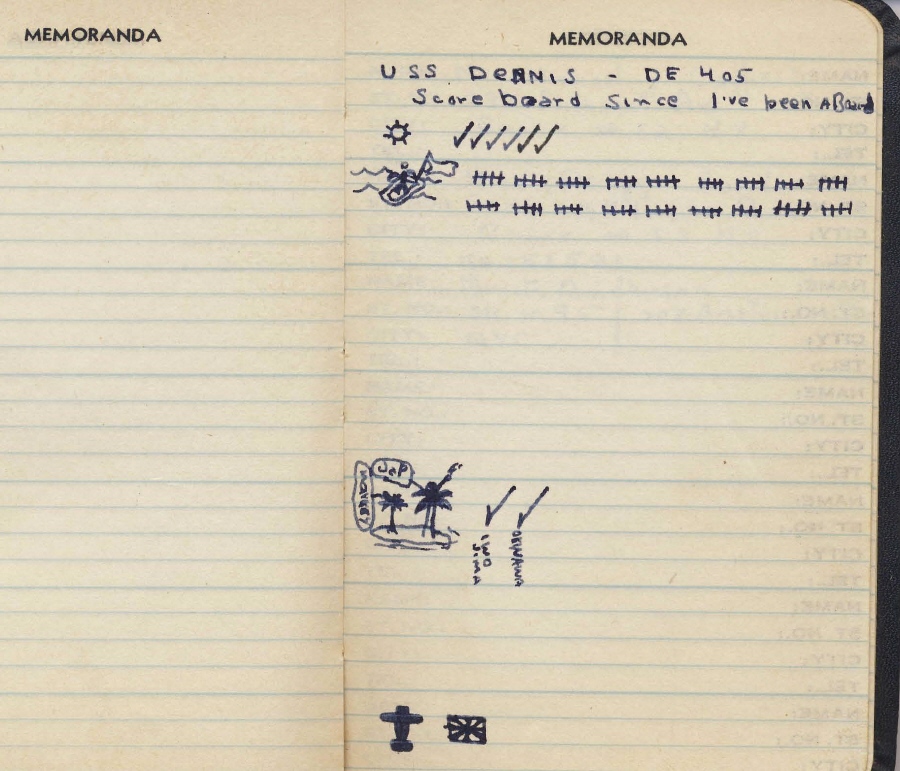 MEMORANDA
MEMORANDA
USS DENNIS - DE 405
Score board since I've been ABoard
JAP
MONKEY
IWO JIMA
OKINAWA